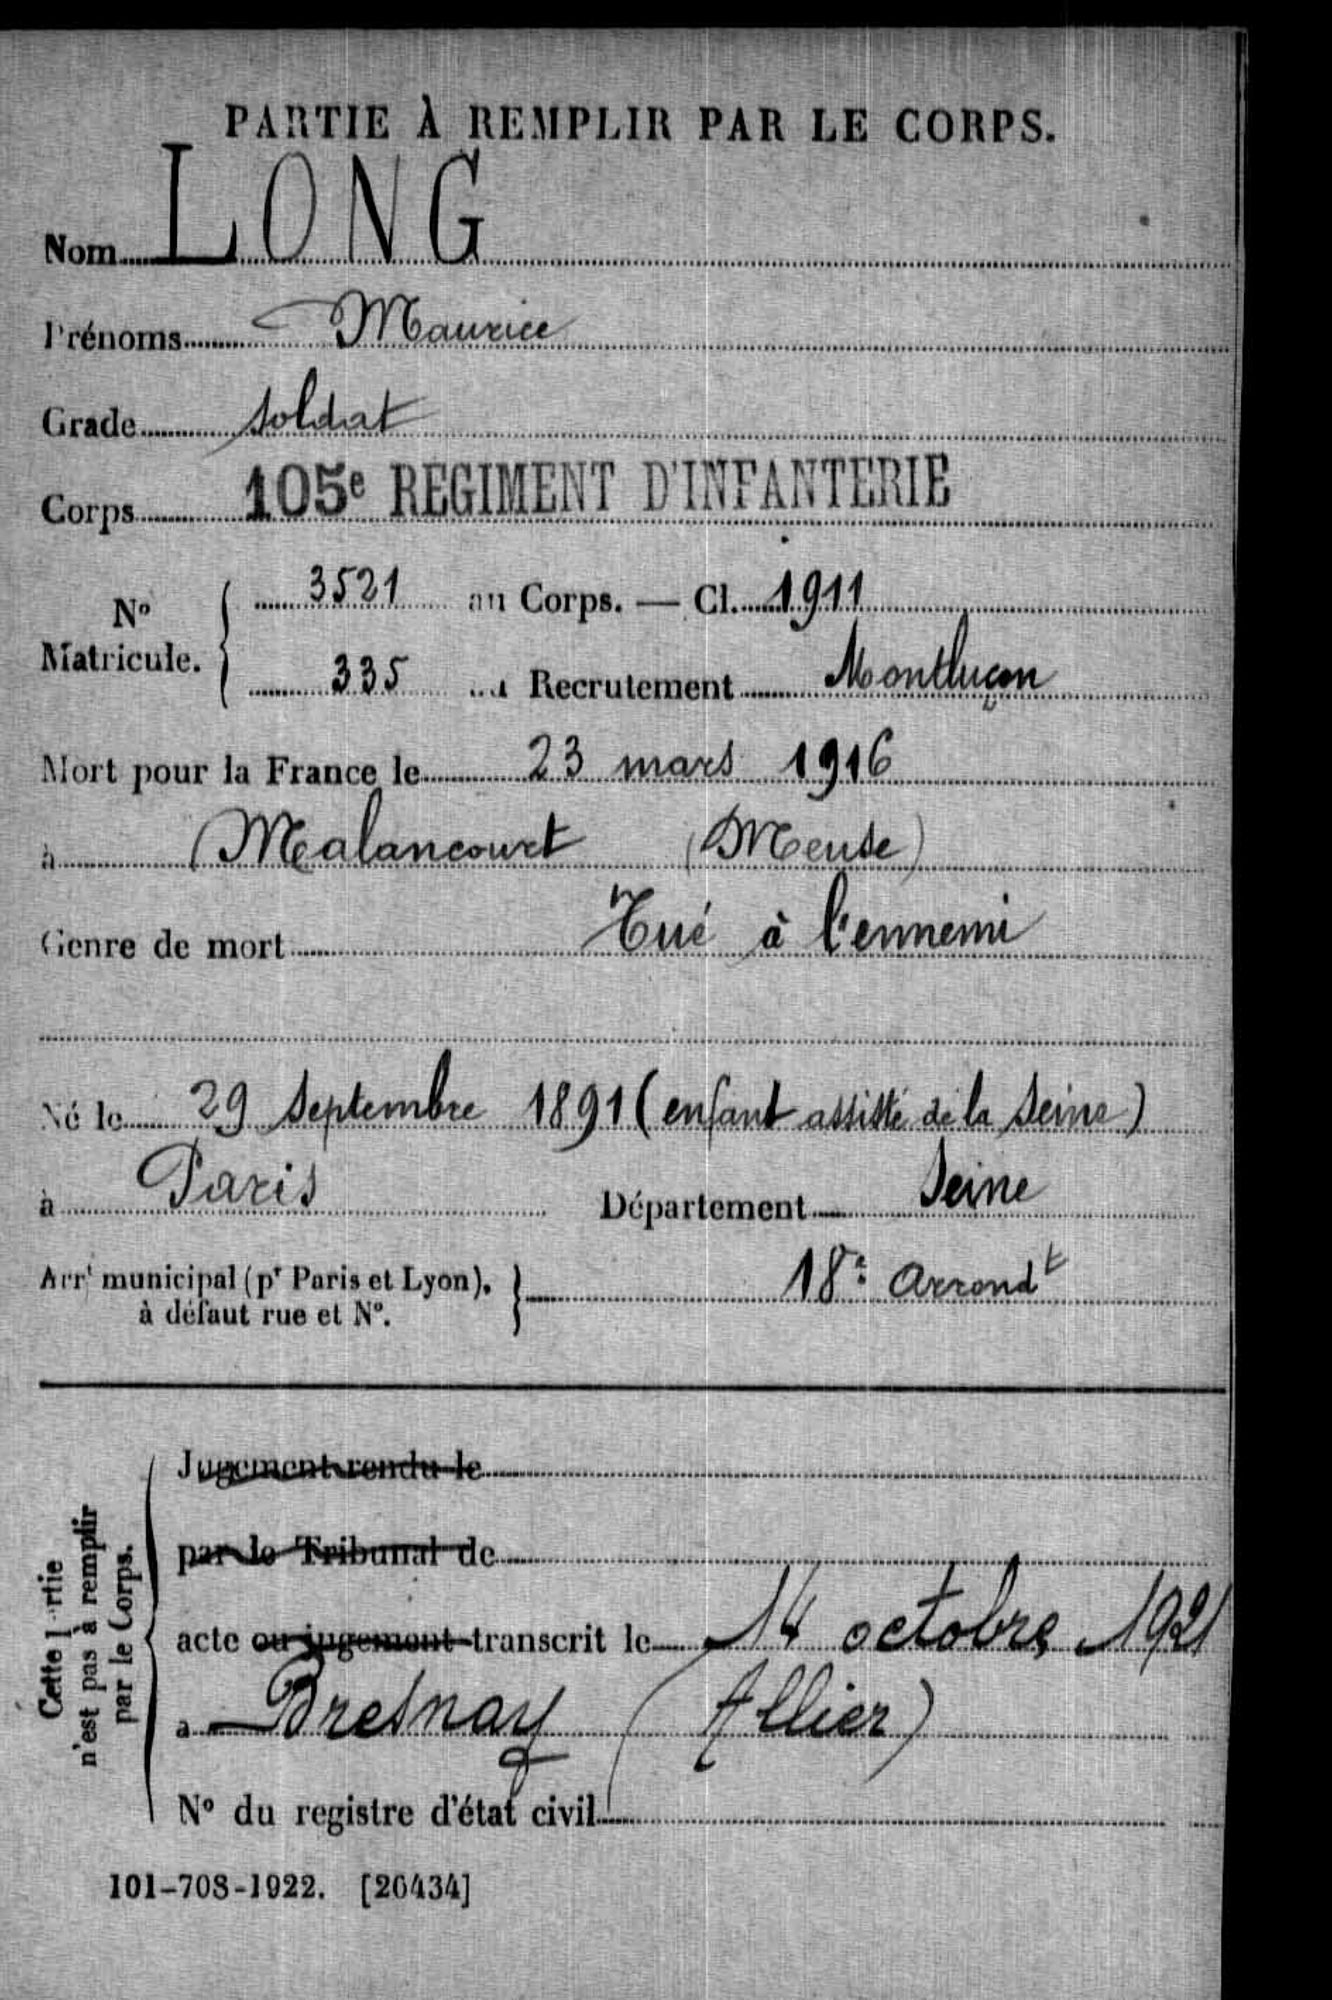 PARTIE À REMPLIR PAR LE CORPS.
Nom LONG
Prénoms Maurice
Grade soldat
Corps 105e REGIMENT D'INFANTERIE
No Matricule. { 3521 au Corps. — Cl. 1911
335 au Recrutement Montluçon
Mort pour la France le 23 mars 1916
à Malancourt (Meuse)
Genre de mort Tué à l'ennemi
Né le 29 Septembre 1891 (enfant assisté de la Seine)
à Paris Département Seine
Arrt municipal (pr Paris et Lyon), } 18e Arrondt
à défaut rue et No.
Cette partie n'est pas à remplir par le Corps.
Jugement rendu le
par le Tribunal de
acte ou jugement transcrit le 14 octobre 1921
à Bresnay (Allier)
No du registre d'état civil
101-708-1922. [26434]